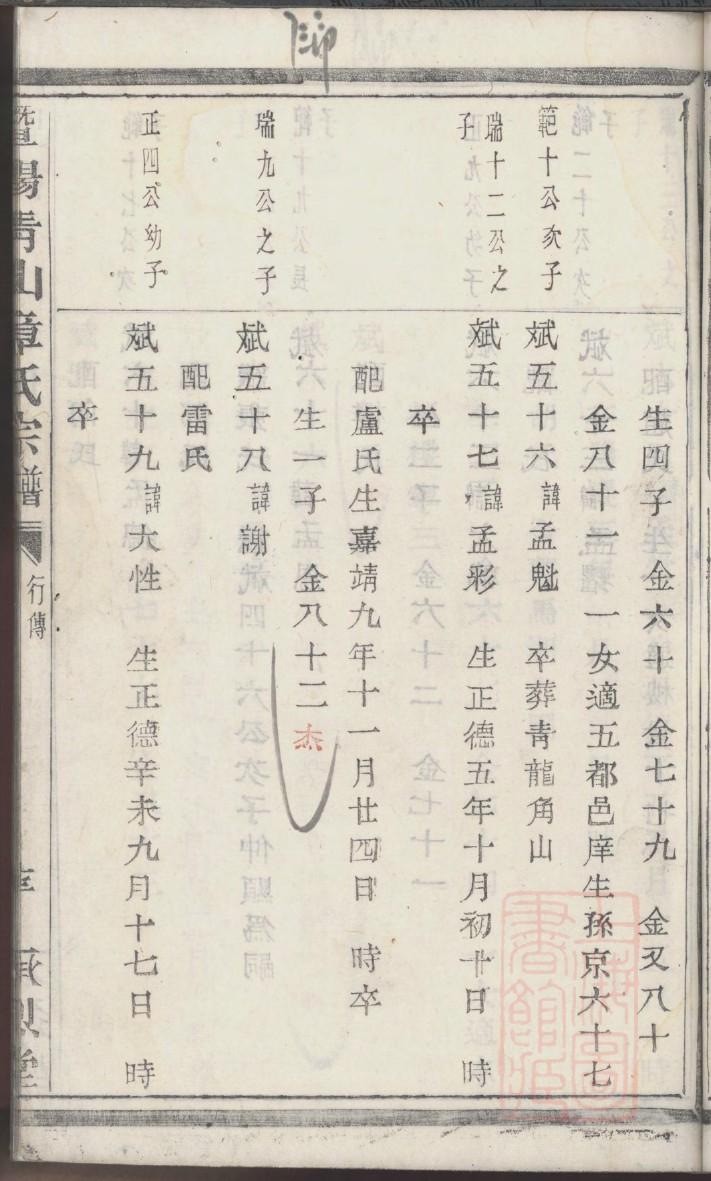 生四子 金六十 金七十九 金又八十
金八十一 一女適五都邑庠生孫京六十七
範十公次子
斌五十六 諱孟魁 卒葬青龍角山
瑞十二公之子
斌五十七 諱孟彩 生正德五年十月初十日 時
卒
配盧氏生嘉靖九年十一月廿四日 時卒
生一子 金八十二 杰
瑞九公之子
斌五十八 諱謝
配雷氏
正四公幼子
斌五十九 諱大性 生正德辛未九月十七日 時
卒
暨陽青山章氏宗譜
行傳
上海圖書館藏